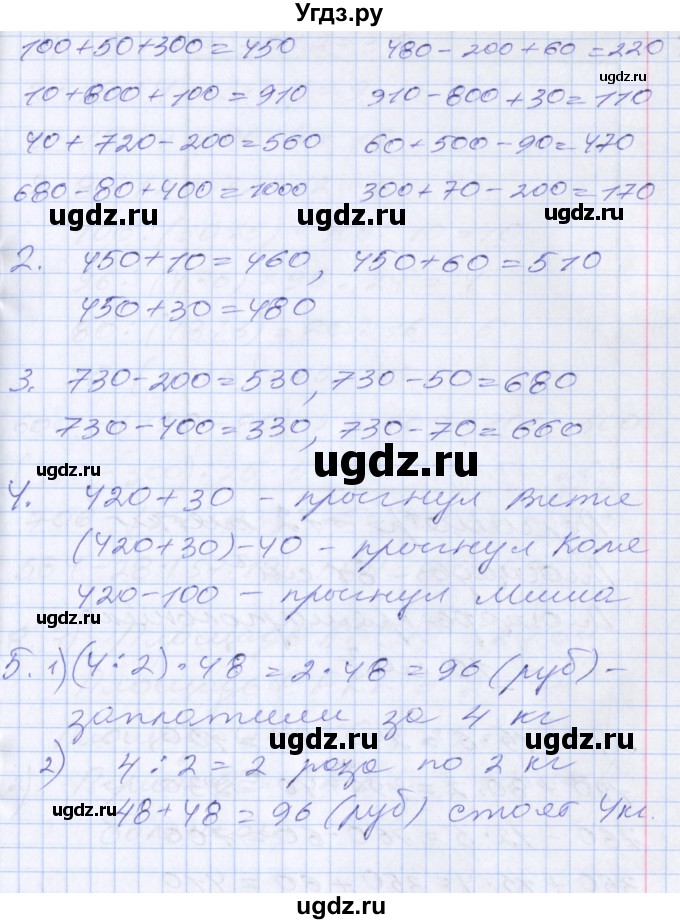 Угдз.ру
100+50+300=450 480-200+60=220
10+800+100=910 910-800+30=110
40+720-200=560 60+500-90=470
680-80+400=1000 300+70-200=170
2. 450+10=460, 450+60=510
450+30=480
3. 730-200=530, 730-50=680
730-400=330, 730-70=660
4. 420+30 - прыгнул Витя
(420+30)-40 - прыгнул Коля
420-100 - прыгнул Миша
5. 1) (4:2)·48=2·48=96 (руб)-
заплатили за 4 кг
2) 4:2=2 раза по 2 кг
48+48=96 (руб) стоят 4кг.
ugdz.ru
ugdz.ru
ugdz.ru
ugdz.ru
ugdz.ru
ugdz.ru
ugdz.ru
ugdz.ru
ugdz.ru
ugdz.ru
ugdz.ru
ugdz.ru
ugdz.ru